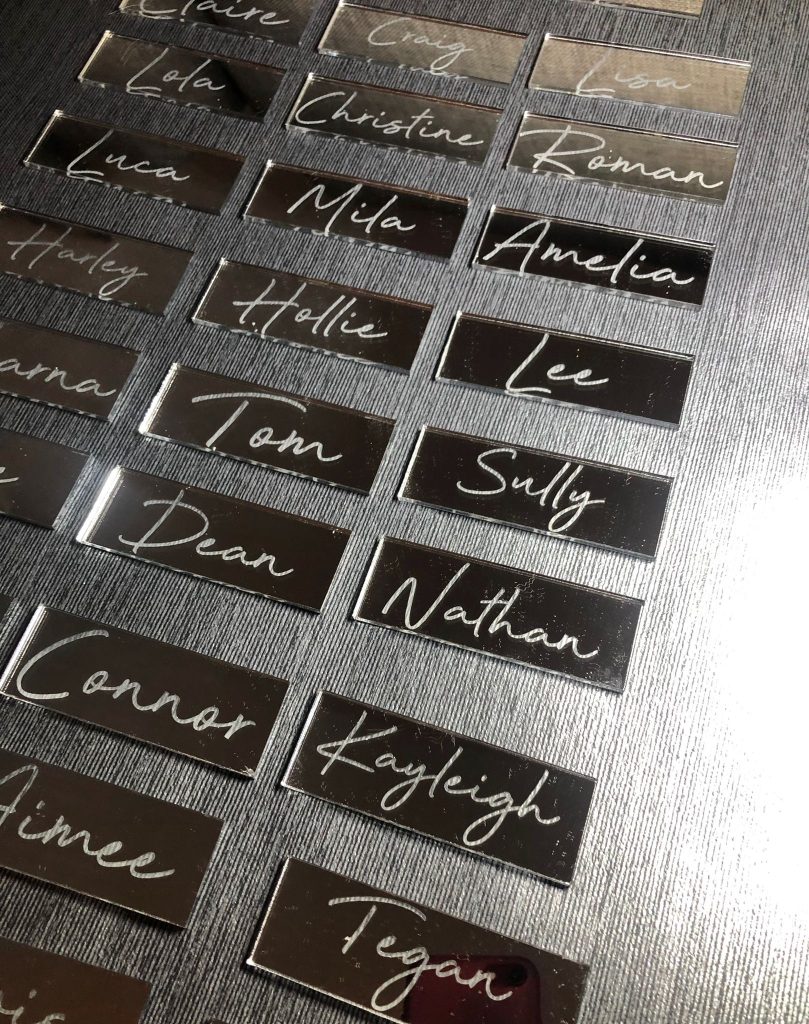 Claire
Craig
Lisa
Lola
Christine
Roman
Luca
Mila
Amelia
Harley
Hollie
Lee
Tom
Sully
Dean
Nathan
Connor
Kayleigh
Aimee
Tegan